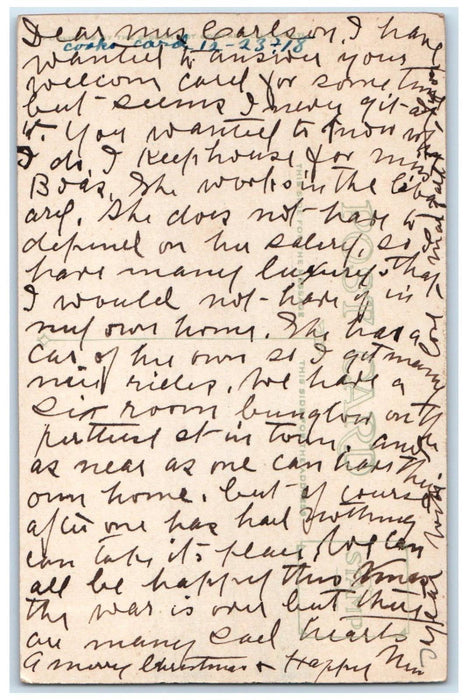 Dear Mrs Carlson, I have
cooks card 12-23-'18
wanted to answer your
welcom card for some time
but seems I never git at
it. You wanted to know what
I do, I keep house for Miss
Boas, She works in the Libr
ary. She does not have to
depend on her salery, so I
have many luxurys that
I would not have if in
my own home. She has a
car of her own so I get many
nice rides. We have a
six room bunglow on the
prettiest st in town, and
as near as one can have their
own home. but of course
after one has had nothing
can take its place. We can
all be happy this Xmas
the war is over but there
are many sad hearts
A merry Christmas & Happy New
POST CARD
THIS SIDE FOR THE
STAMP